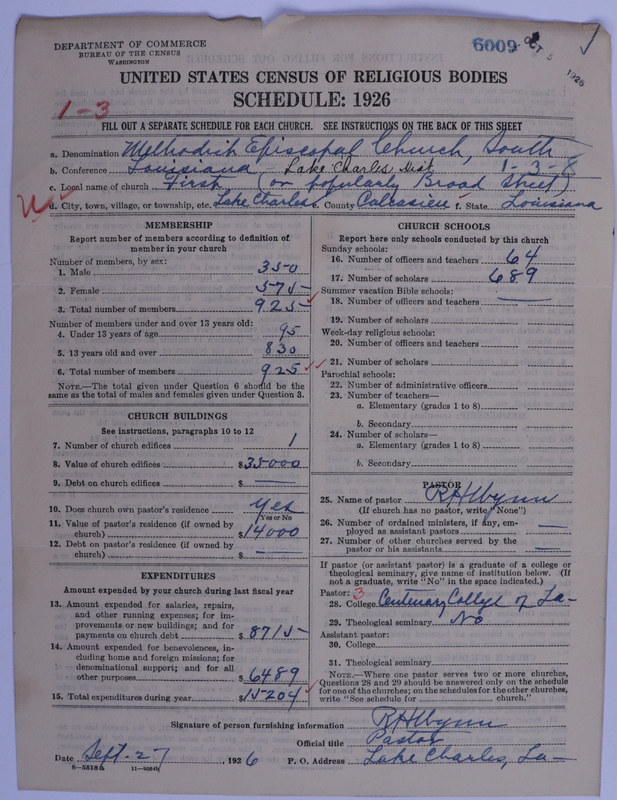 DEPARTMENT OF COMMERCE
BUREAU OF THE CENSUS
WASHINGTON
6009
OCT 5 1926
UNITED STATES CENSUS OF RELIGIOUS BODIES
SCHEDULE: 1926
1-3
FILL OUT A SEPARATE SCHEDULE FOR EACH CHURCH. SEE INSTRUCTIONS ON THE BACK OF THIS SHEET
a. Denomination Methodist Episcopal Church, South
b. Conference Louisiana, Lake Charles Dist 1-3-
c. Local name of church First (or popularly Broad Street)
d. City, town, village, or township, etc. Lake Charles e. County Calcasieu f. State Louisiana
MEMBERSHIP
Report number of members according to definition of
member in your church
Number of members, by sex:
1. Male 350
2. Female 575
3. Total number of members 925
Number of members under and over 13 years old:
4. Under 13 years of age 95
5. 13 years old and over 830
6. Total number of members 925
NOTE.—The total given under Question 6 should be the
same as the total of males and females given under Question 3.
CHURCH BUILDINGS
See instructions, paragraphs 10 to 12
7. Number of church edifices 1
8. Value of church edifices $35000
9. Debt on church edifices $ —
10. Does church own pastor's residence Yes
(Yes or No)
11. Value of pastor's residence (if owned by
church) $14000
12. Debt on pastor's residence (if owned by
church) $ —
EXPENDITURES
Amount expended by your church during last fiscal year
13. Amount expended for salaries, repairs,
and other running expenses; for im-
provements or new buildings; and for
payments on church debt $8715
14. Amount expended for benevolences, in-
cluding home and foreign missions; for
denominational support; and for all
other purposes $6489
15. Total expenditures during year $15204
CHURCH SCHOOLS
Report here only schools conducted by this church
Sunday schools:
16. Number of officers and teachers 64
17. Number of scholars 689
Summer vacation Bible schools:
18. Number of officers and teachers —
19. Number of scholars
Week-day religious schools:
20. Number of officers and teachers
21. Number of scholars
Parochial schools:
22. Number of administrative officers
23. Number of teachers—
a. Elementary (grades 1 to 8)
b. Secondary
24. Number of scholars—
a. Elementary (grades 1 to 8)
b. Secondary
PASTOR
25. Name of pastor R H Wynn
(If church has no pastor, write "None")
26. Number of ordained ministers, if any, em-
ployed as assistant pastors —
27. Number of other churches served by the
pastor or his assistants —
If pastor (or assistant pastor) is a graduate of a college or
theological seminary, give name of institution below. (If
not a graduate, write "No" in the space indicated.)
Pastor: 3
28. College Centenary College of La-
29. Theological seminary No
Assistant pastor:
30. College
31. Theological seminary
NOTE.—Where one pastor serves two or more churches,
Questions 28 and 29 should be answered only on the schedule
for one of the churches; on the schedules for the other churches,
write "See schedule for church."
Signature of person furnishing information R H Wynn
Official title Pastor
Date Sept. 27, 1926 P. O. Address Lake Charles, La-
8-5518 11-9084